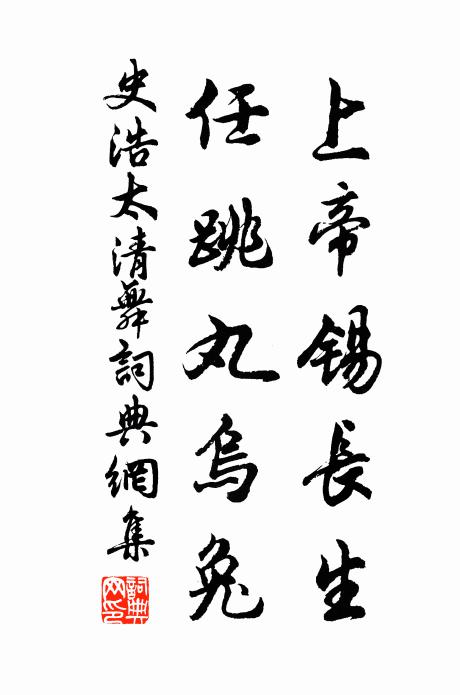 上帝錫長生
任跳丸烏兔
史浩太清舞詞典網集
詞典网印